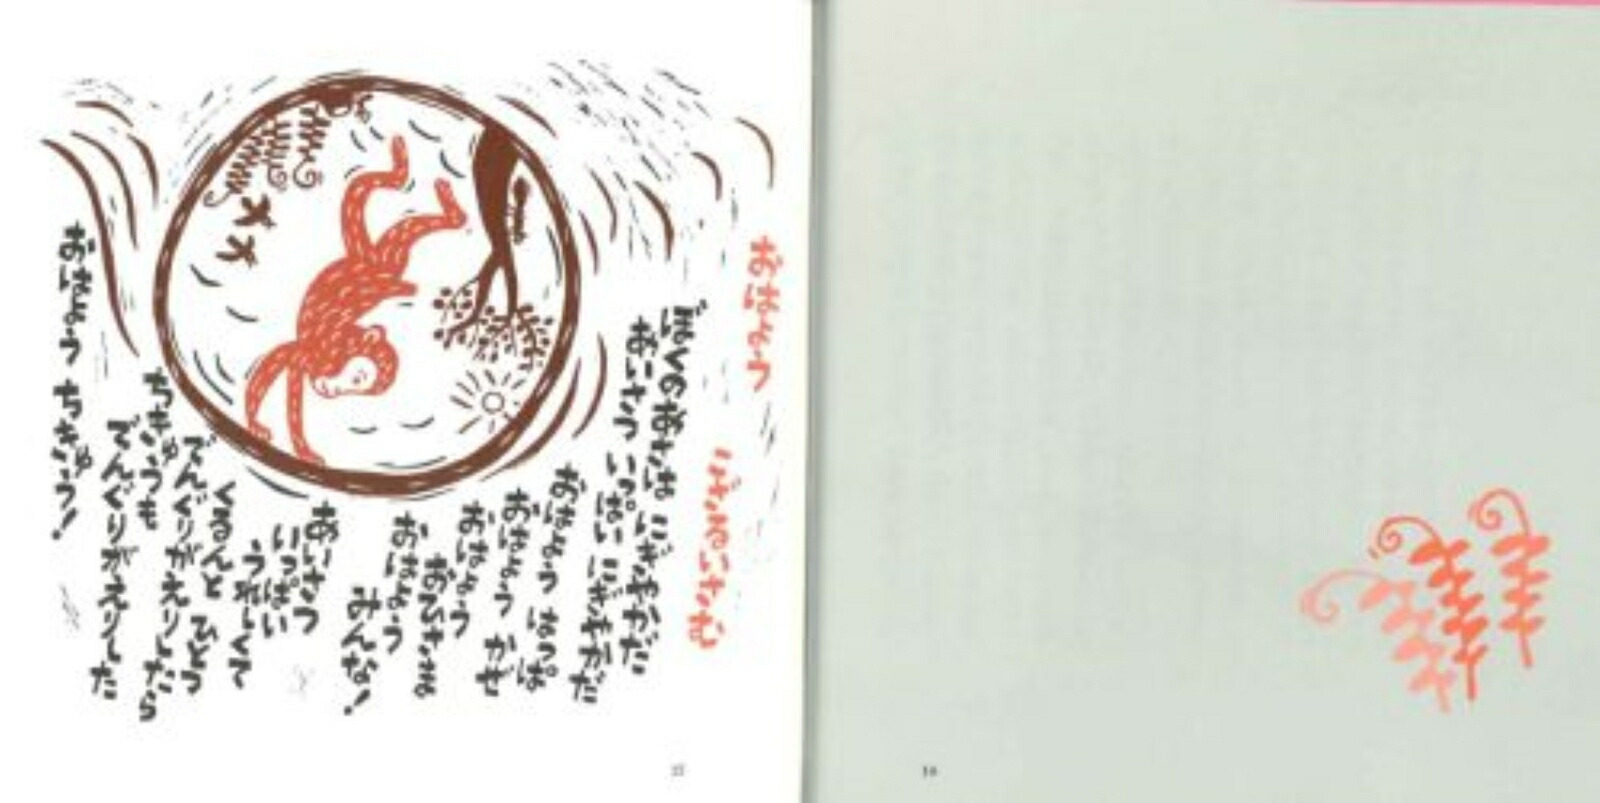 おはよう
こざるいさむ
ぼくのあさは にぎやかだ
あいさつ いっぱい にぎやかだ
おはよう はっぱ
おはよう かぜ
おはよう おひさま
おはよう みんな!
あいさつ
いっぱい
うれしくて
くるんと ひとつ
でんぐりがえりしたら
ちきゅうも
でんぐりがえりした
おはよう ちきゅう!